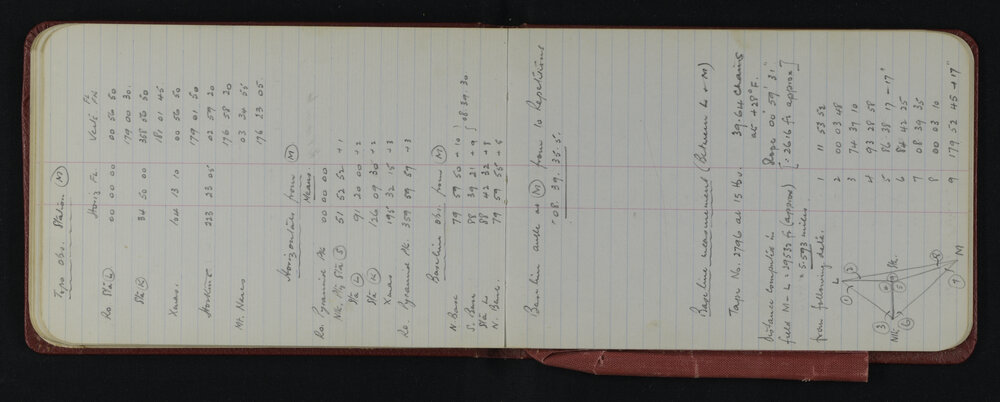 Topo obs. Station (M)
Horiz FL Vert FL FR
Ro Sta (L) 00 00 00 00 56 50
179 00 30.
Sta (K) 34 50 00 358 56 50
181 01 45.
Xmas. 164 13 10 00 56 50
179 01 50.
Hoskins. 223 23 05 02 59 20
176 58 20
Mt. Nares 03 34 55
176 23 05.
Horizontals from (M)
Means
Ro. Pyramid Pk 00 00 00
51 52 52 +1
Sta (L) 91 20 00 +2
Sta (K) 126 09 30 +2
Xmas 195 32 15 +3
Ro. Pyramid Pk. 359 59 57 +3
Baseline obs. from (M)
N. Base 79 59 50 +10
S. Base 88 39 21 +9 } 08 39 30
Sta L 88 42 32 +8
N. Base 79 59 55 +5
Baseline angle at (M) from 10 Repetitions
= 08. 39. 35.5.
Baseline measurement (Between L + M)
Tape No. 2796 at 15 lbs. 39.614 chains
at +28° F.
Distance computed in Slope 00° 59' 31"
field M - L = 29532 ft (approx) [= 2616 ft approx]
= 5.593 miles.
from following data.
1 11 53 52
2 00 03 48
3 74 39 10
4 93 28 58
5 86 38 17 - 17"
6 84 42 25
7 08 39 35
8 00 03 10
9 179 52 45 + 17"
L
M